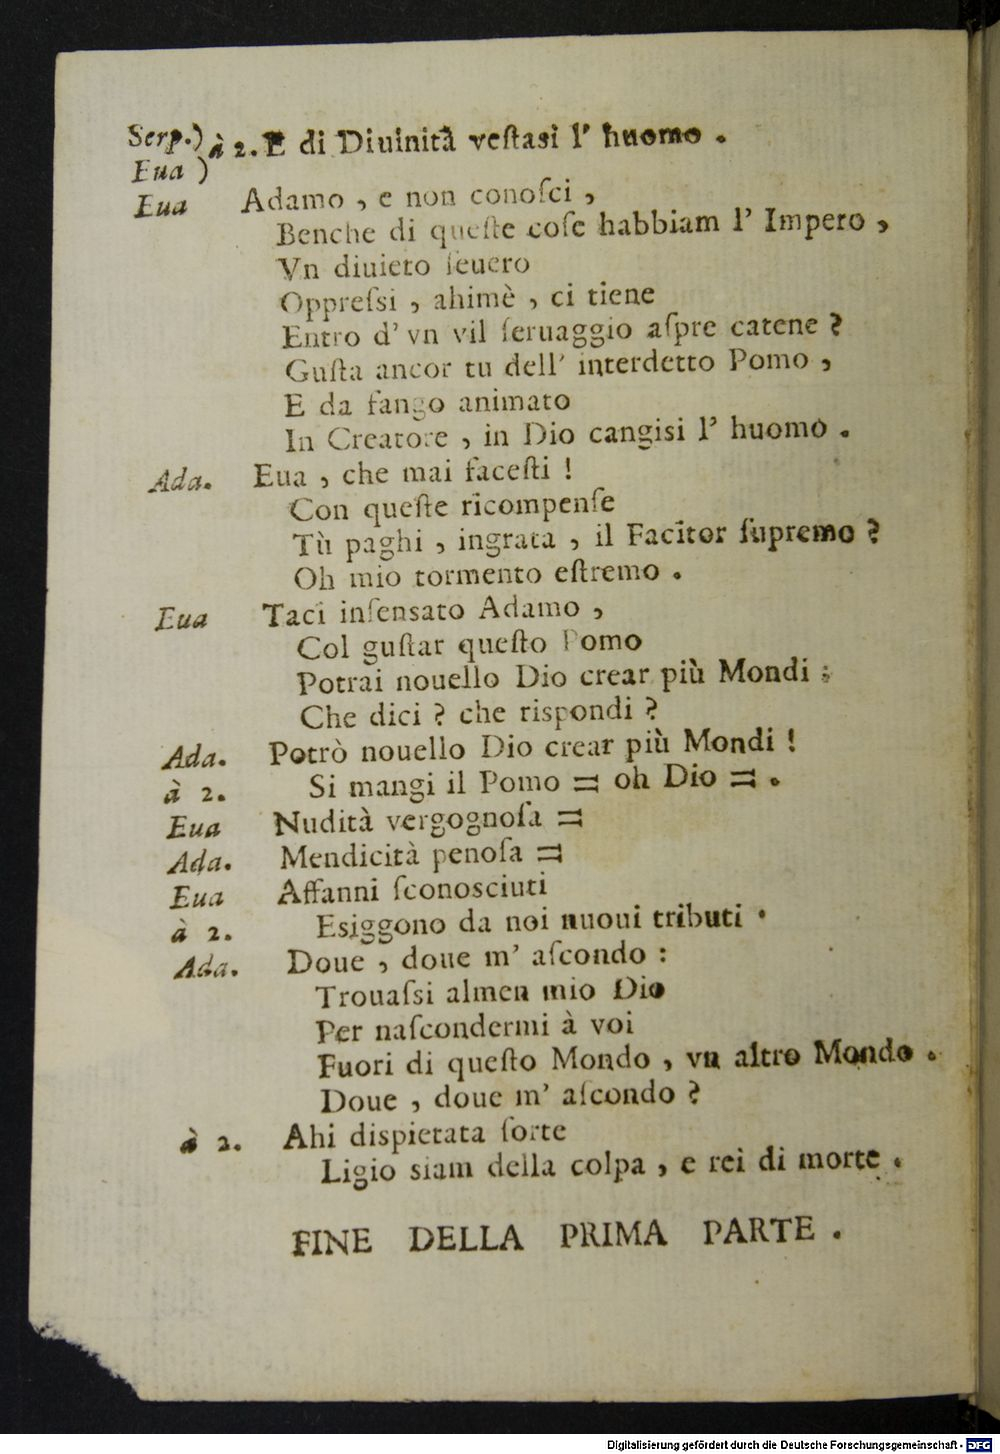 Serp.) à 2. E di Diuinità veſtasi l' huomo .
Eua )
Eua Adamo , e non conoſci ,
Benche di queſte coſe habbiam l' Impero ,
Vn diuieto ſeuero
Oppreſsi , ahimè , ci tiene
Entro d' vn vil ſeruaggio aſpre catene ?
Guſta ancor tu dell' interdetto Pomo ,
E da fango animato
In Creatore , in Dio cangisi l' huomo .
Ada. Eua , che mai faceſti !
Con queſte ricompenſe
Tù paghi , ingrata , il Facitor ſupremo ?
Oh mio tormento eſtremo .
Eua Taci inſensato Adamo ,
Col guſtar queſto Pomo
Potrai nouello Dio crear più Mondi :
Che dici ? che rispondi ?
Ada. Potrò nouello Dio crear più Mondi !
à 2. Si mangi il Pomo = oh Dio = .
Eua Nudità vergognoſa =
Ada. Mendicità penoſa =
Eua Affanni ſconosciuti
à 2. Esiggono da noi nuoui tributi .
Ada. Doue , doue m' aſcondo :
Trouaſsi almen mio Dio
Per naſcondermi à voi
Fuori di queſto Mondo , vn altro Mondo .
Doue , doue m' aſcondo ?
à 2. Ahi dispietata ſorte
Ligio siam della colpa , e rei di morte .
FINE DELLA PRIMA PARTE .
Digitalisierung gefördert durch die Deutsche Forschungsgemeinschaft - DFG